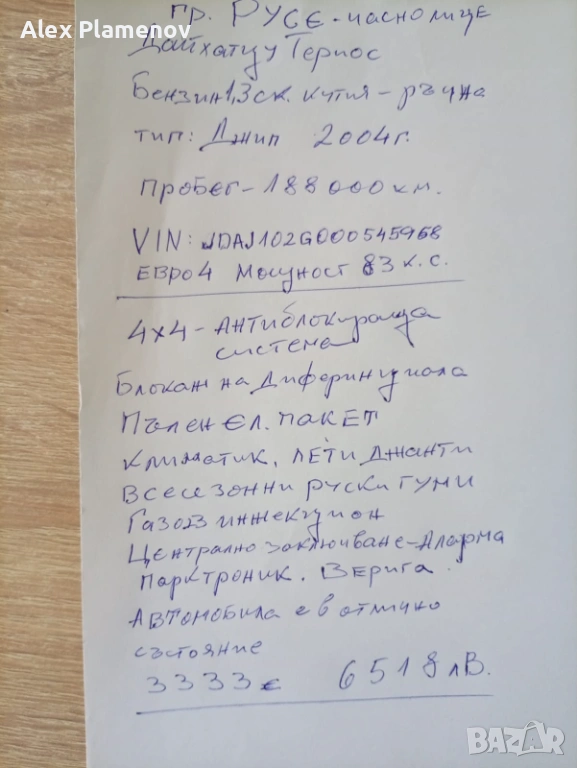 Alex Plamenov
гр. РУСЕ - частно лице
Дайхатцу Териос
Бензин 1,3 ск. кутия - ръчна
тип: Джип 2004г.
Пробег - 188 000 км.
VIN: JDAJ102G000545968
ЕВРО 4 Мощност 83 к.с.
4x4 - Антиблокираща
система
Блокаж на Диференциала
Пълен Ел. ПАКЕТ
Климатик, ЛЕТИ Джанти
Всесезонни руски ГУМИ
Газов инжекцион
Централно заключване - Аларма
Парктроник. Верига.
Автомобила е в отлично
състояние
3333€ 6518 лв.
BAZAR